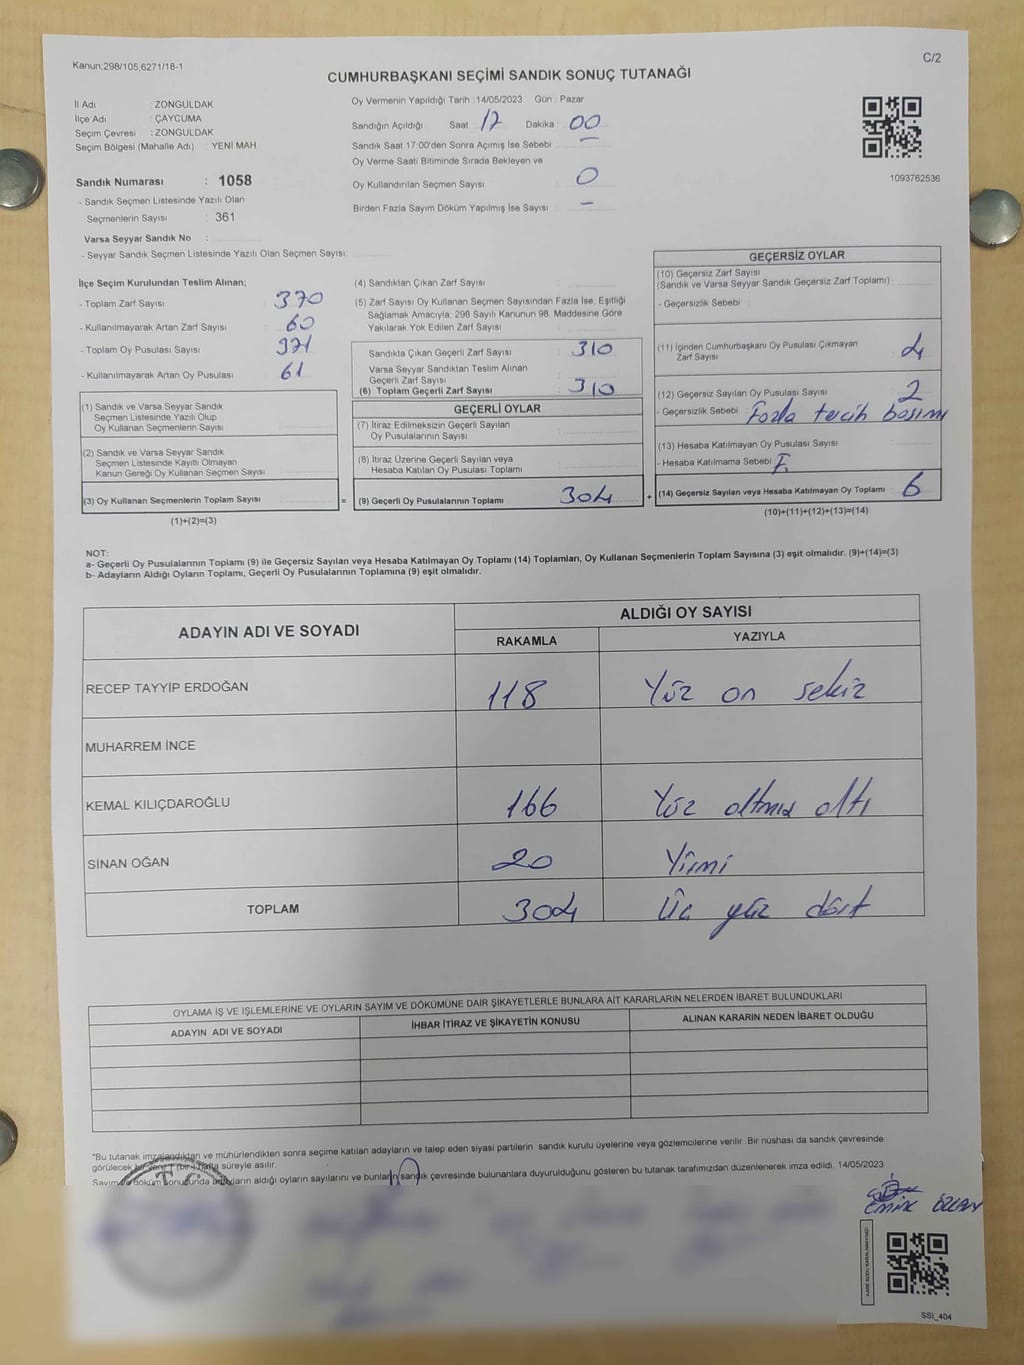 Kanun;298/105;6271/18-1
C/2
CUMHURBAŞKANI SEÇİMİ SANDIK SONUÇ TUTANAĞI
İl Adı : ZONGULDAK
İlçe Adı : ÇAYCUMA
Seçim Çevresi : ZONGULDAK
Seçim Bölgesi (Mahalle Adı) : YENİ MAH.
Sandık Numarası : 1058
- Sandık Seçmen Listesinde Yazılı Olan
Seçmenlerin Sayısı : 361
Varsa Seyyar Sandık No :
- Seyyar Sandık Seçmen Listesinde Yazılı Olan Seçmen Sayısı:
Oy Vermenin Yapıldığı Tarih : 14/05/2023 Gün : Pazar
Sandığın Açıldığı Saat 17 Dakika 00
Sandık Saat 17:00'den Sonra Açımış İse Sebebi —
Oy Verme Saati Bitiminde Sırada Bekleyen ve
Oy Kullandırılan Seçmen Sayısı 0
Birden Fazla Sayım Döküm Yapılmış İse Sayısı —
1093762536
İlçe Seçim Kurulundan Teslim Alınan;
- Toplam Zarf Sayısı 370
- Kullanılmayarak Artan Zarf Sayısı 60
- Toplam Oy Pusulası Sayısı 371
- Kullanılmayarak Artan Oy Pusulası 61
(1) Sandık ve Varsa Seyyar Sandık
Seçmen Listesinde Yazılı Olup
Oy Kullanan Seçmenlerin Sayısı
(2) Sandık ve Varsa Seyyar Sandık
Seçmen Listesinde Kayıtlı Olmayan
Kanun Gereği Oy Kullanan Seçmen Sayısı
(3) Oy Kullanan Seçmenlerin Toplam Sayısı =
(1)+(2)=(3)
(4) Sandıktan Çıkan Zarf Sayısı
(5) Zarf Sayısı Oy Kullanan Seçmen Sayısından Fazla İse, Eşitliği
Sağlamak Amacıyla, 298 Sayılı Kanunun 98. Maddesine Göre
Yakılarak Yok Edilen Zarf Sayısı
Sandıkta Çıkan Geçerli Zarf Sayısı 310
Varsa Seyyar Sandıktan Teslim Alınan
Geçerli Zarf Sayısı
(6) Toplam Geçerli Zarf Sayısı 310
GEÇERLİ OYLAR
(7) İtiraz Edilmeksizin Geçerli Sayılan
Oy Pusulalarının Sayısı
(8) İtiraz Üzerine Geçerli Sayılan veya
Hesaba Katılan Oy Pusulası Toplamı
(9) Geçerli Oy Pusulalarının Toplamı 304 +
GEÇERSİZ OYLAR
(10) Geçersiz Zarf Sayısı
(Sandık ve Varsa Seyyar Sandık Geçersiz Zarf Toplamı)
- Geçersizlik Sebebi
(11) İçinden Cumhurbaşkanı Oy Pusulası Çıkmayan
Zarf Sayısı 4
(12) Geçersiz Sayılan Oy Pusulası Sayısı 2
- Geçersizlik Sebebi Fazla tercih basımı
(13) Hesaba Katılmayan Oy Pusulası Sayısı
- Hesaba Katılmama Sebebi
(14) Geçersiz Sayılan veya Hesaba Katılmayan Oy Toplamı 6
(10)+(11)+(12)+(13)=(14)
NOT:
a- Geçerli Oy Pusulalarının Toplamı (9) ile Geçersiz Sayılan veya Hesaba Katılmayan Oy Toplamı (14) Toplamları, Oy Kullanan Seçmenlerin Toplam Sayısına (3) eşit olmalıdır. (9)+(14)=(3)
b- Adayların Aldığı Oyların Toplamı, Geçerli Oy Pusulalarının Toplamına (9) eşit olmalıdır.
ADAYIN ADI VE SOYADI
ALDIĞI OY SAYISI
RAKAMLA YAZIYLA
RECEP TAYYİP ERDOĞAN 118 Yüz on sekiz
MUHARREM İNCE
KEMAL KILIÇDAROĞLU 166 Yüz altmış altı
SİNAN OĞAN 20 Yirmi
TOPLAM 304 Üç yüz dört
OYLAMA İŞ VE İŞLEMLERİNE VE OYLARIN SAYIM VE DÖKÜMÜNE DAİR ŞİKAYETLERLE BUNLARA AİT KARARLARIN NELERDEN İBARET BULUNDUKLARI
ADAYIN ADI VE SOYADI İHBAR İTİRAZ VE ŞİKAYETİN KONUSU ALINAN KARARIN NEDEN İBARET OLDUĞU
*Bu tutanak imzalandıktan ve mühürlendikten sonra seçime katılan adayların ve talep eden siyasi partilerin sandık kurulu üyelerine veya gözlemcilerine verilir. Bir nüshası da sandık çevresinde
görülecek bir yere 1 (bir) hafta süreyle asılır.
Sayım ve döküm sonucunda adayların aldığı oyların sayılarını ve bunların sandık çevresinde bulunanlara duyurulduğunu gösteren bu tutanak tarafımızdan düzenlenerek imza edildi. 14/05/2023
T.C.
SSİ_404